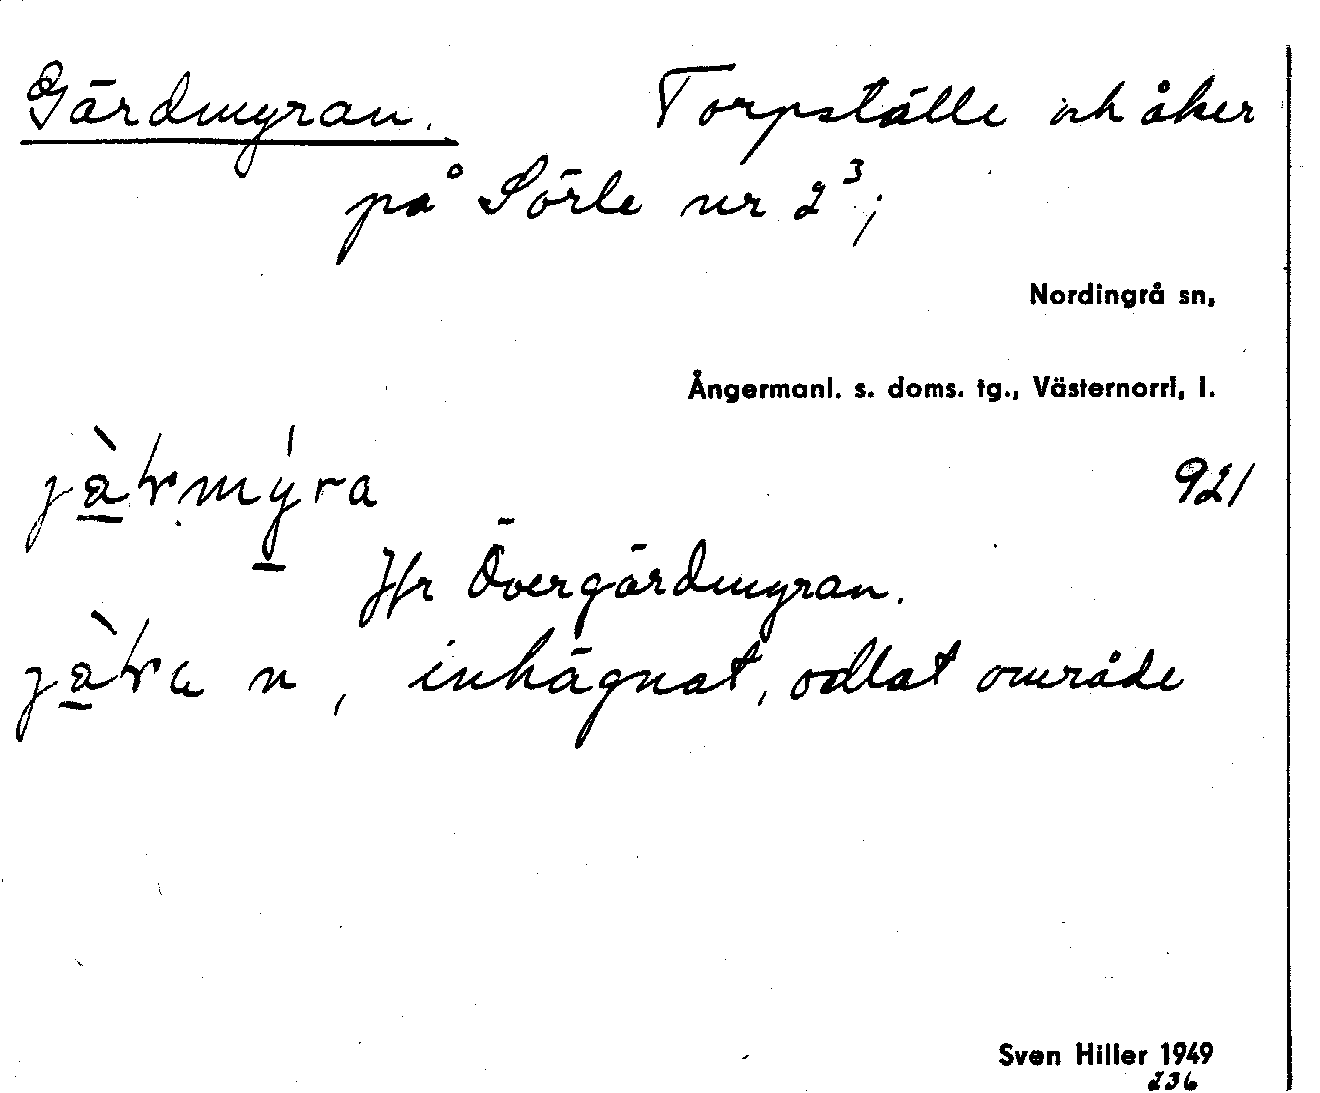 Gärdmyran. Torpställe och åker
på Sörle nr 2³;
Nordingrå sn,
Ångermanl. s. doms. tg., Västernorrl, l.
921
Jfr Övergärdmyran.
n, inhägnat, odlat område
Sven Hiller 1949
236